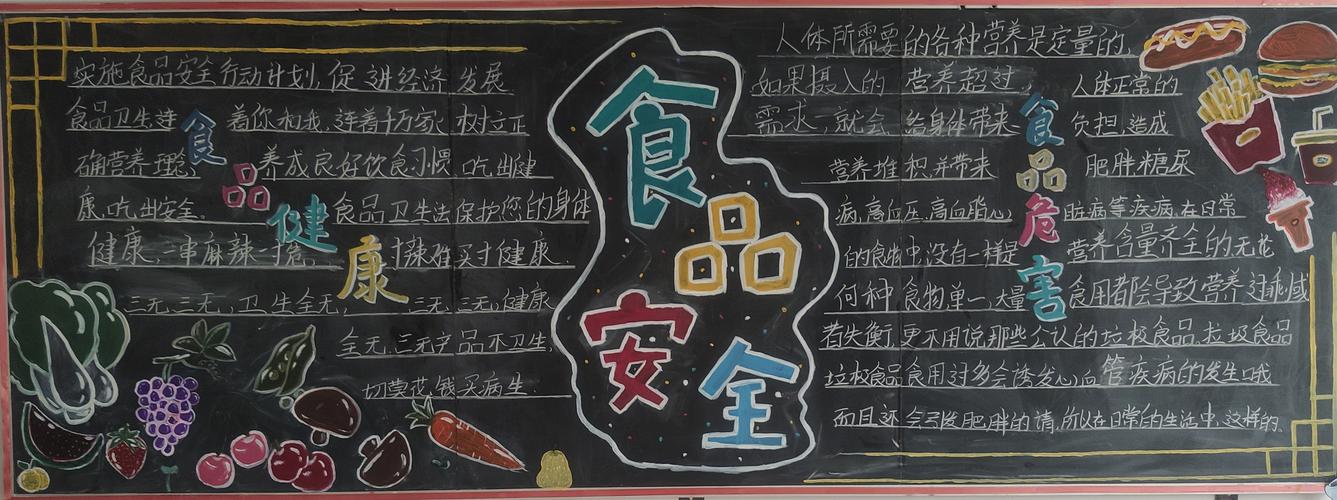 实施食品安全行动计划,促进经济发展
食品卫生连着你和我,连着千万家,树立正
确营养理念,养成良好饮食习惯 吃出健
康,吃出安全。食品卫生法保护您的身体
健康,一串麻辣一寸危,寸辣难买寸健康.
三无,三无,卫生全无,三无,三无,健康
全无,三无产品不卫生,
切莫花钱买病生
食品健康
食品安全
人体所需要的各种营养是定量的,
如果摄入的营养超过人体正常的
需求,就会给身体带来负担,造成
营养堆积,并带来肥胖糖尿
病,高血压,高血脂,心脏病等疾病,在日常
的食物中,没有一样是营养含量齐全的,无论
何种食物单一,大量食用都会导致营养过剩或
者失衡,更不用说那些公认的垃圾食品,垃圾食品
垃圾食品食用过多会诱发心血管疾病的发生哦
而且还会引发肥胖的请,所以在日常的生活中,这样的
食品危害